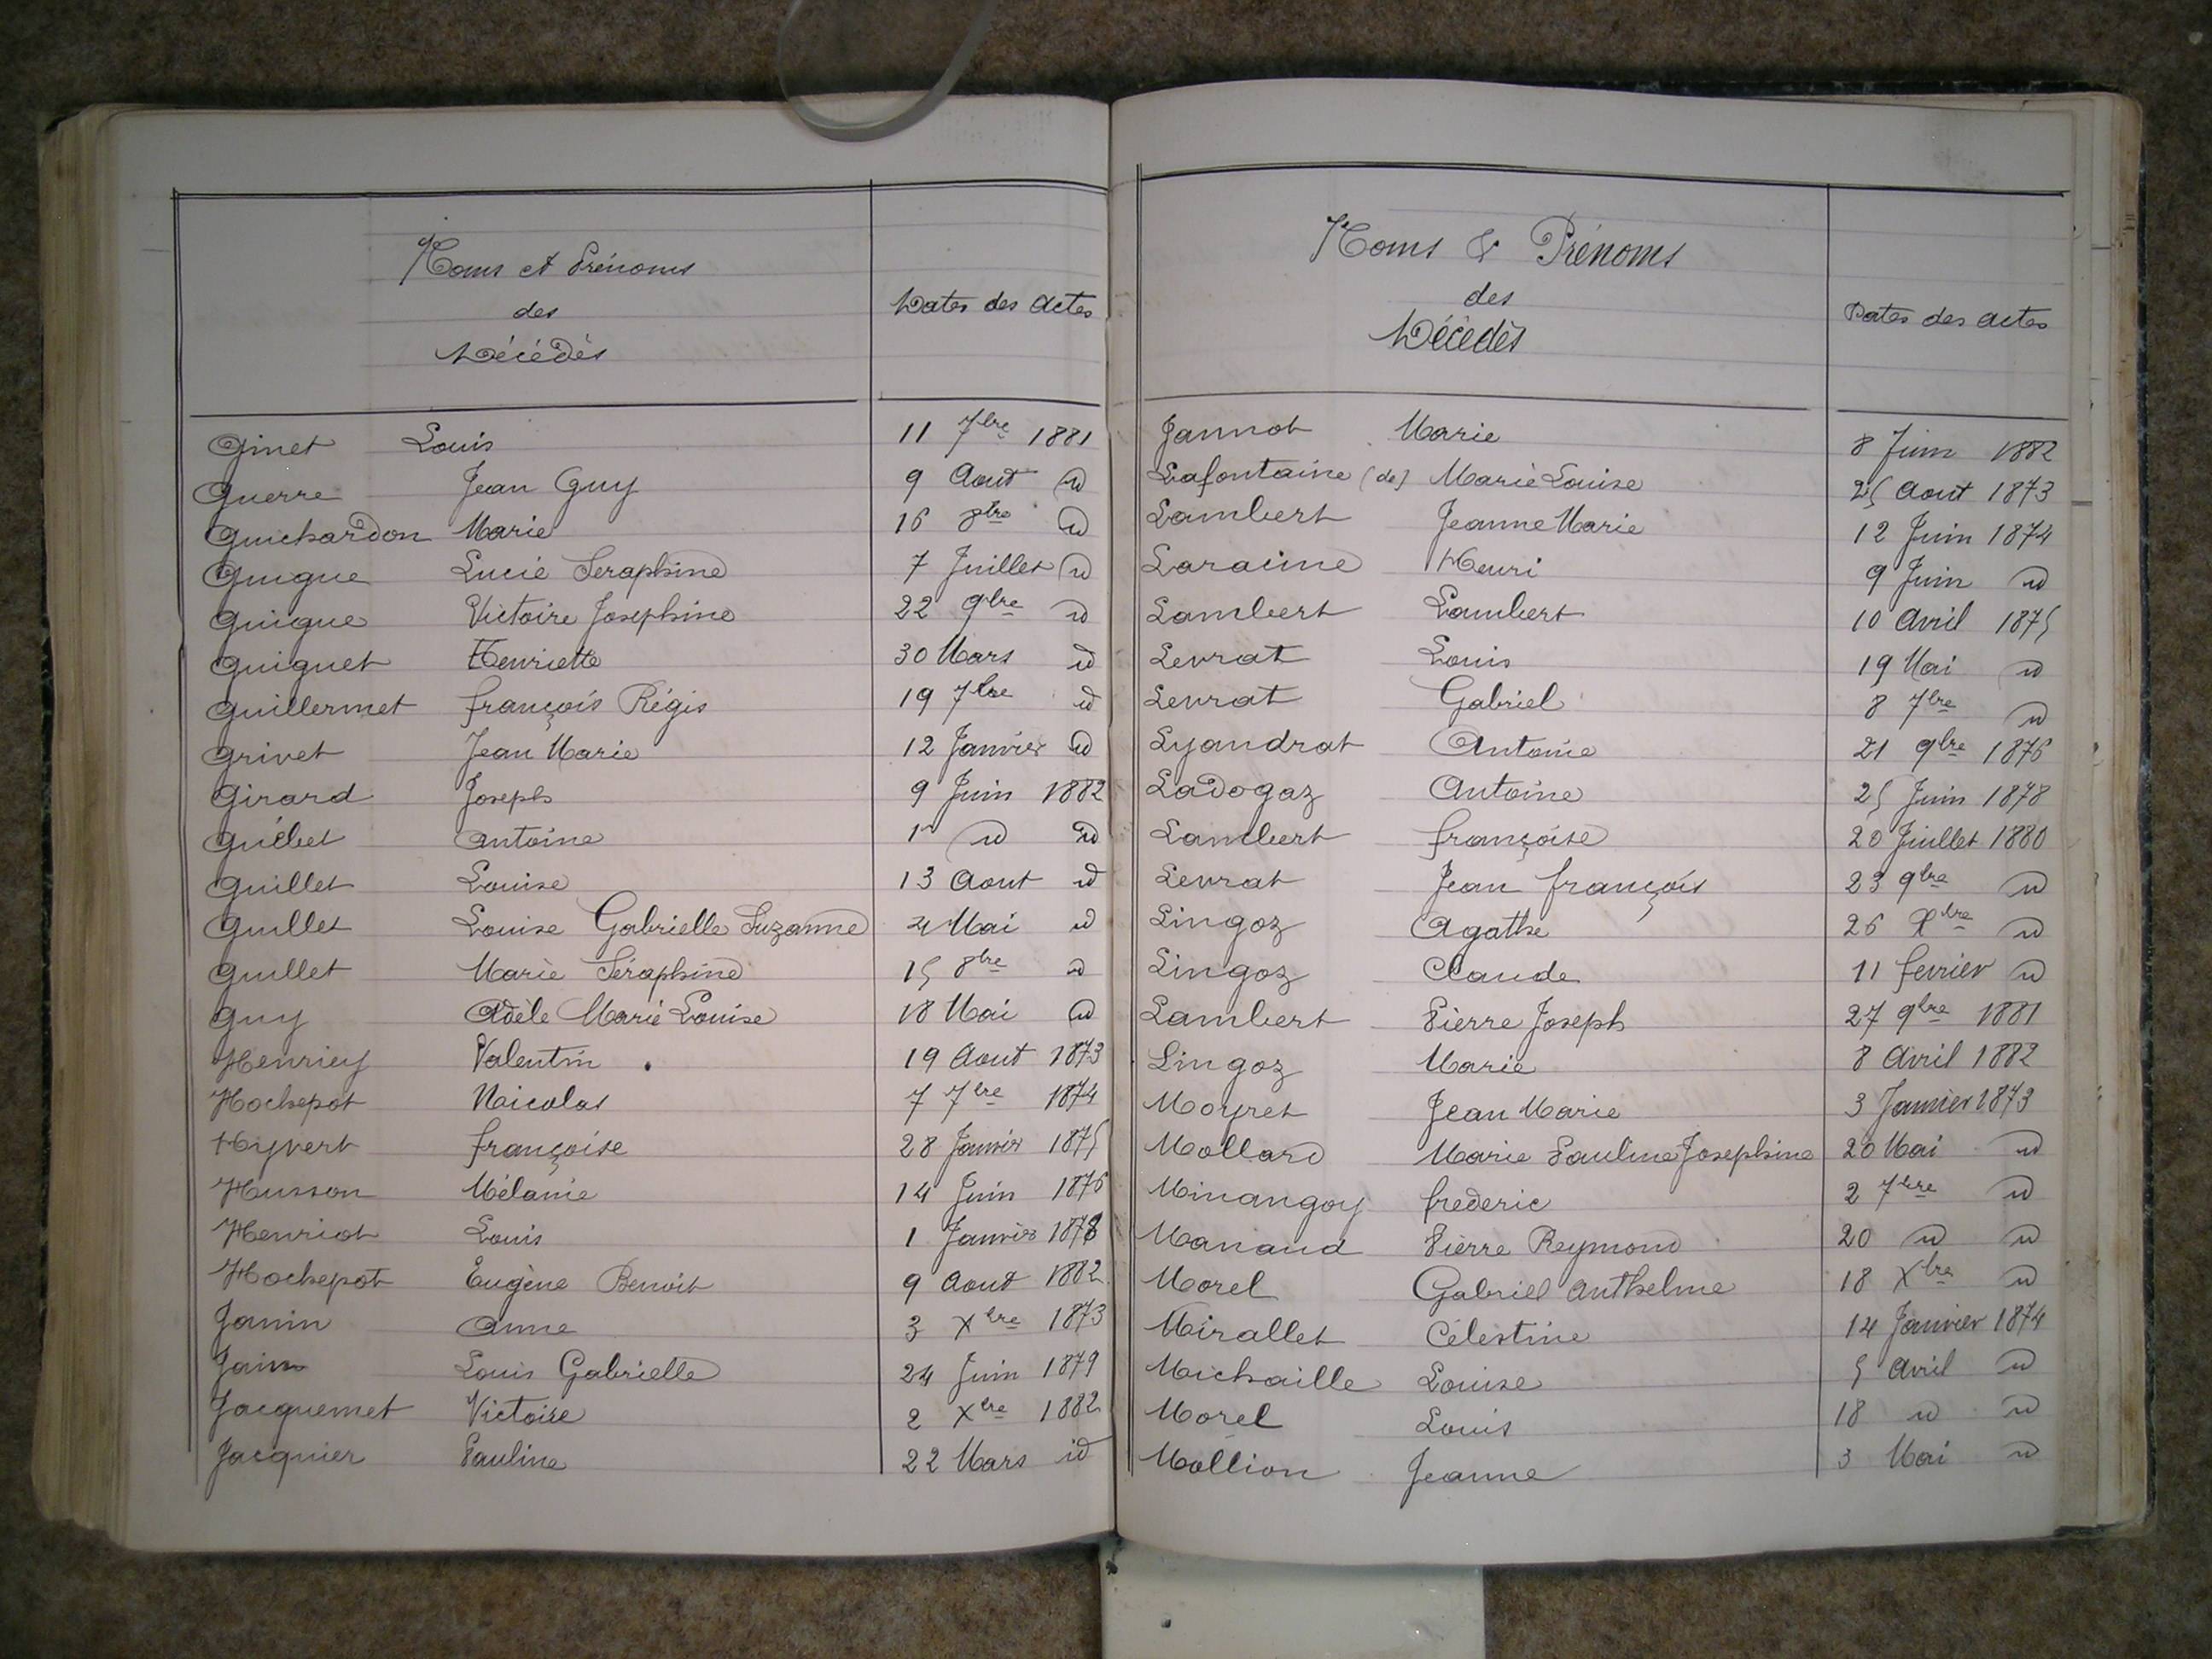 Noms et Prénoms
des
Décédés
Dates des Actes
Ginet Louis 11 7bre 1881
Guerre Jean Guy 9 Aout id
Guichardon Marie 16 8bre id
Guigue Lucie Seraphine 7 Juillet id
Guigue Victoire Josephine 22 9bre id
Guiguet Henriette 30 Mars id
Guillermet françois Régis 19 7bre id
Grivet Jean Marie 12 Janvier id
Girard Joseph 9 Juin 1882
Guébet Antoine 1er id id
Guillet Louise 13 Aout id
Guillet Louise Gabrielle Suzanne 4 Mai id
Guillet Marie Séraphine 15 8bre id
Guy Adèle Marie Louise 18 Mai id
Henriey Valentin 19 Aout 1873
Hochepot Nicolas 7 7bre 1874
Hyvert françoise 28 Janvier 1875
Husson Mélanie 14 Juin 1876
Henriot Louis 1 Janvier 1878
Hochepot Eugène Benoit 9 Aout 1882
Janin Anne 3 Xbre 1873
Janin Louis Gabrielle 24 Juin 1879
Jacquemet Victoire 2 Xbre 1882
Jacquier Pauline 22 Mars id
Noms & Prénoms
des
Décédés
Dates des actes
Jannot Marie 8 Juin 1882
Lafontaine (de) Marie Louise 25 Aout 1873
Lambert Jeanne Marie 12 Juin 1874
Laracine Henri 9 Juin id
Lambert Lambert 10 Avril 1875
Levrat Louis 19 Mai id
Levrat Gabriel 8 7bre id
Lyandrat Antoine 21 9bre 1876
Ladogaz Antoine 25 Juin 1878
Lambert françoise 20 Juillet 1880
Levrat Jean françois 23 9bre id
Lingoz Agathe 26 Xbre id
Lingoz Claude 11 fevrier id
Lambert Pierre Joseph 27 9bre 1881
Lingoz Marie 8 Avril 1882
Moyret Jean Marie 3 Janvier 1873
Mollard Marie Pauline Josephine 20 Mai id
Minangoy frederic 2 7bre id
Manand Pierre Reymond 20 id id
Morel Gabriel Anthelme 18 Xbre id
Mirallet Célestine 14 Janvier 1874
Michaille Louise 5 Avril id
Morel Louis 18 id id
Mollion Jeanne 3 Mai id